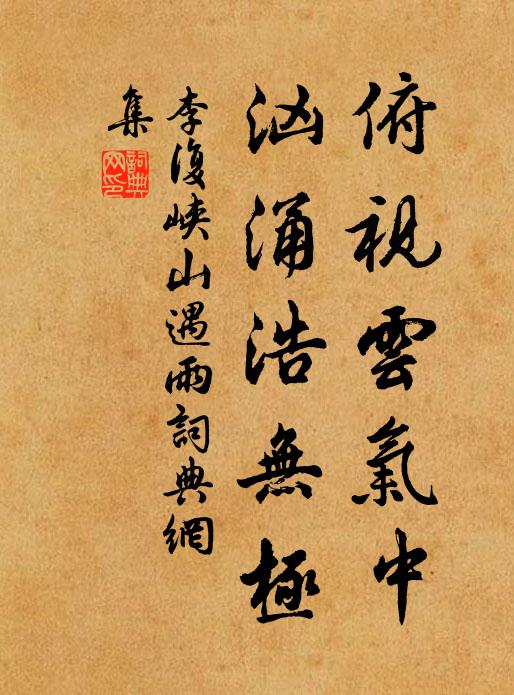 俯視雲氣中
汹涌浩無極
李復峽山遇雨詞典網
集
詞典
网印